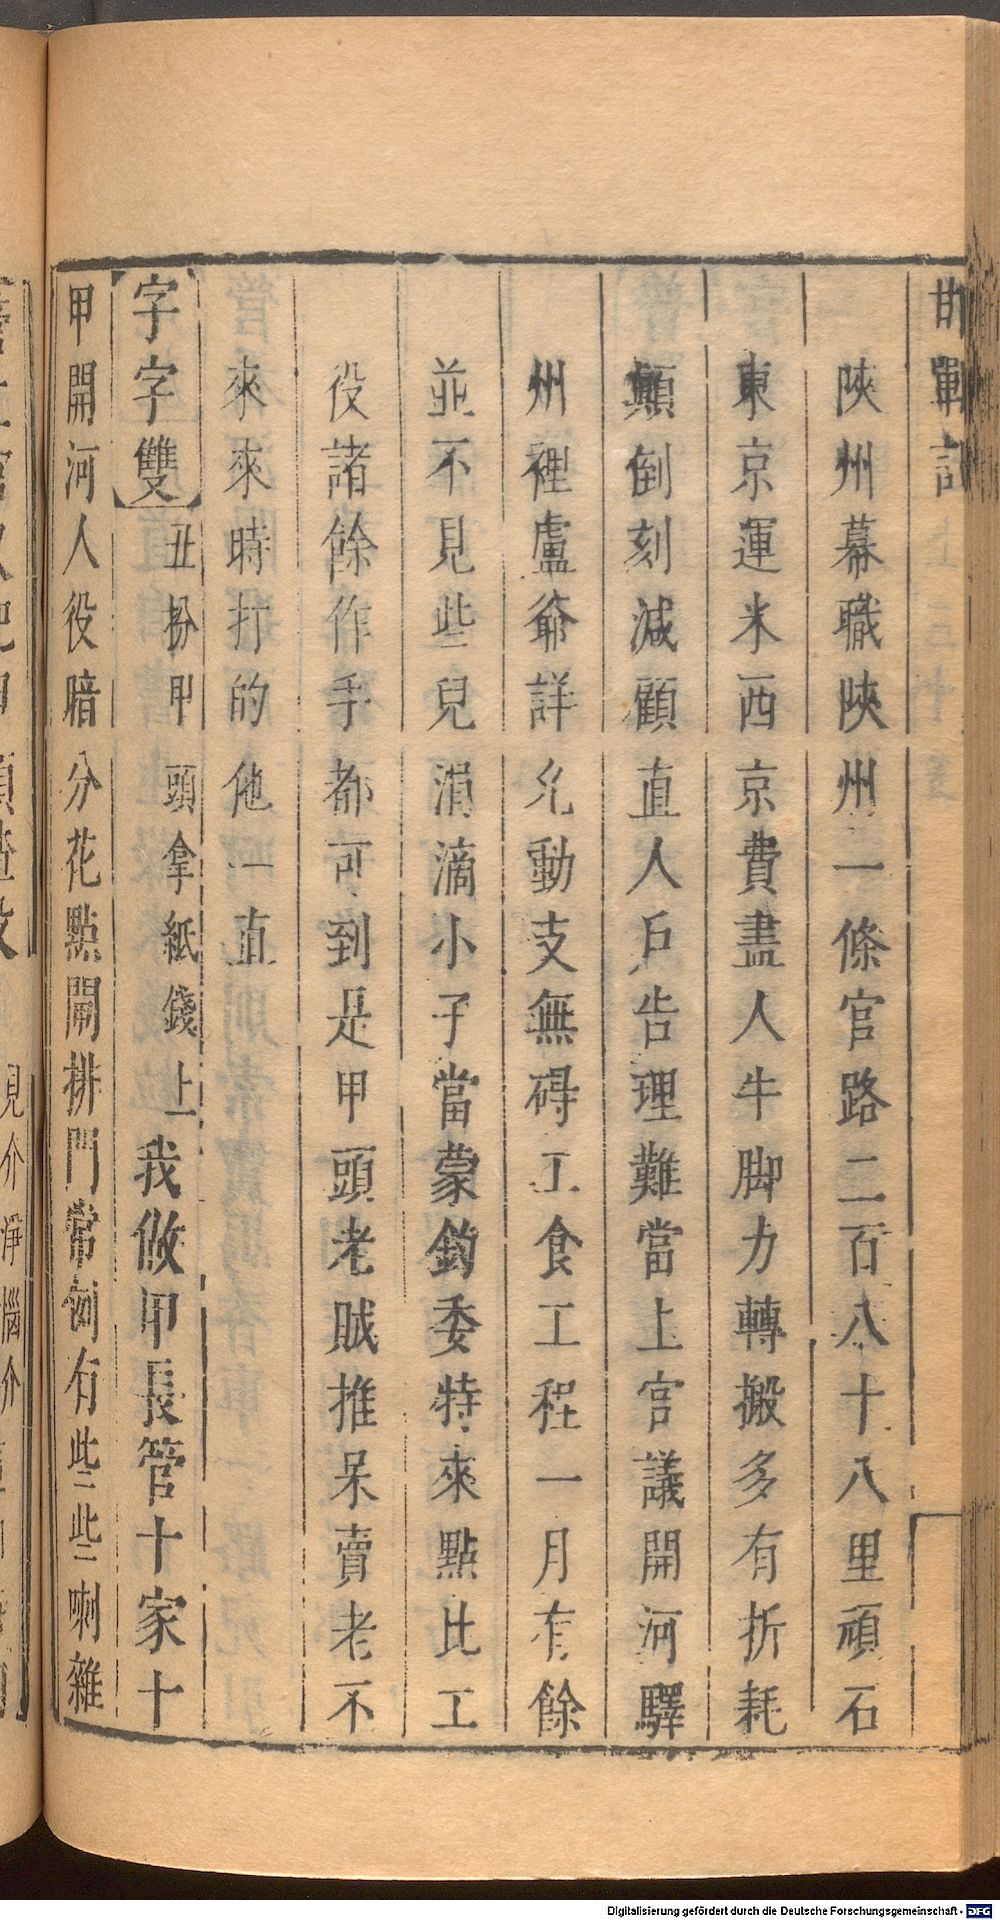 邯鄲記
陝州幕職陝州一條官路二百八十八里頑石
東京運米西京費盡人牛脚力轉搬多有折耗
顛倒刻減顧直人戶告理難當上官議開河驛
州裡盧爺詳允動支無碍工食工程一月有餘
並不見些兒涓滴小子當蒙鈞委特來點比工
役諸餘作手都可到是甲頭老賊推呆賣老不
來來時打的他一直
字字雙丑扮甲頭拿紙錢上我做甲長管十家十
甲開河人役暗分花點閘排門常例有些些喇雜
見介淨惱介
Digitalisierung gefördert durch die Deutsche Forschungsgemeinschaft - DFG